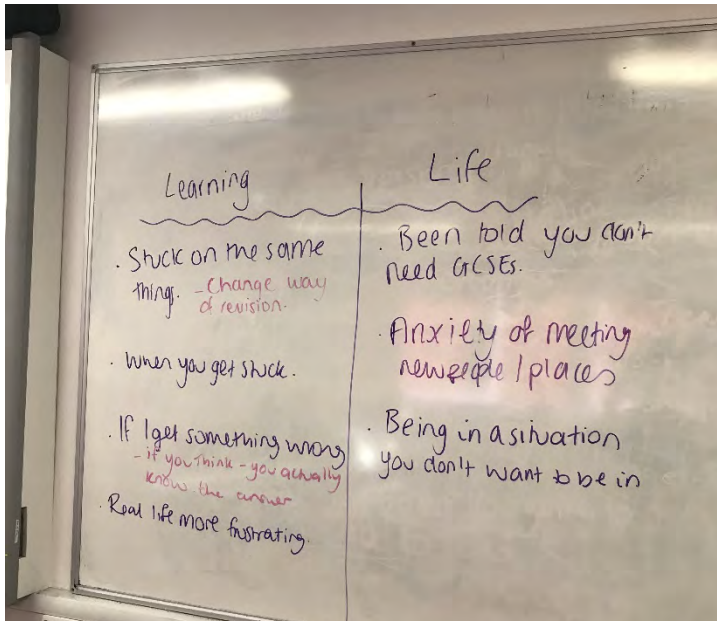 Learning
. Stuck on the same
things. - Change way
of revision.
. When you get stuck.
. If I get something wrong
- if you think - you actually
know the answer
. Real life more frustrating.
Life
. Been told you don't
need GCSEs.
. Anxiety of meeting
new people / places
. Being in a situation
you don't want to be in